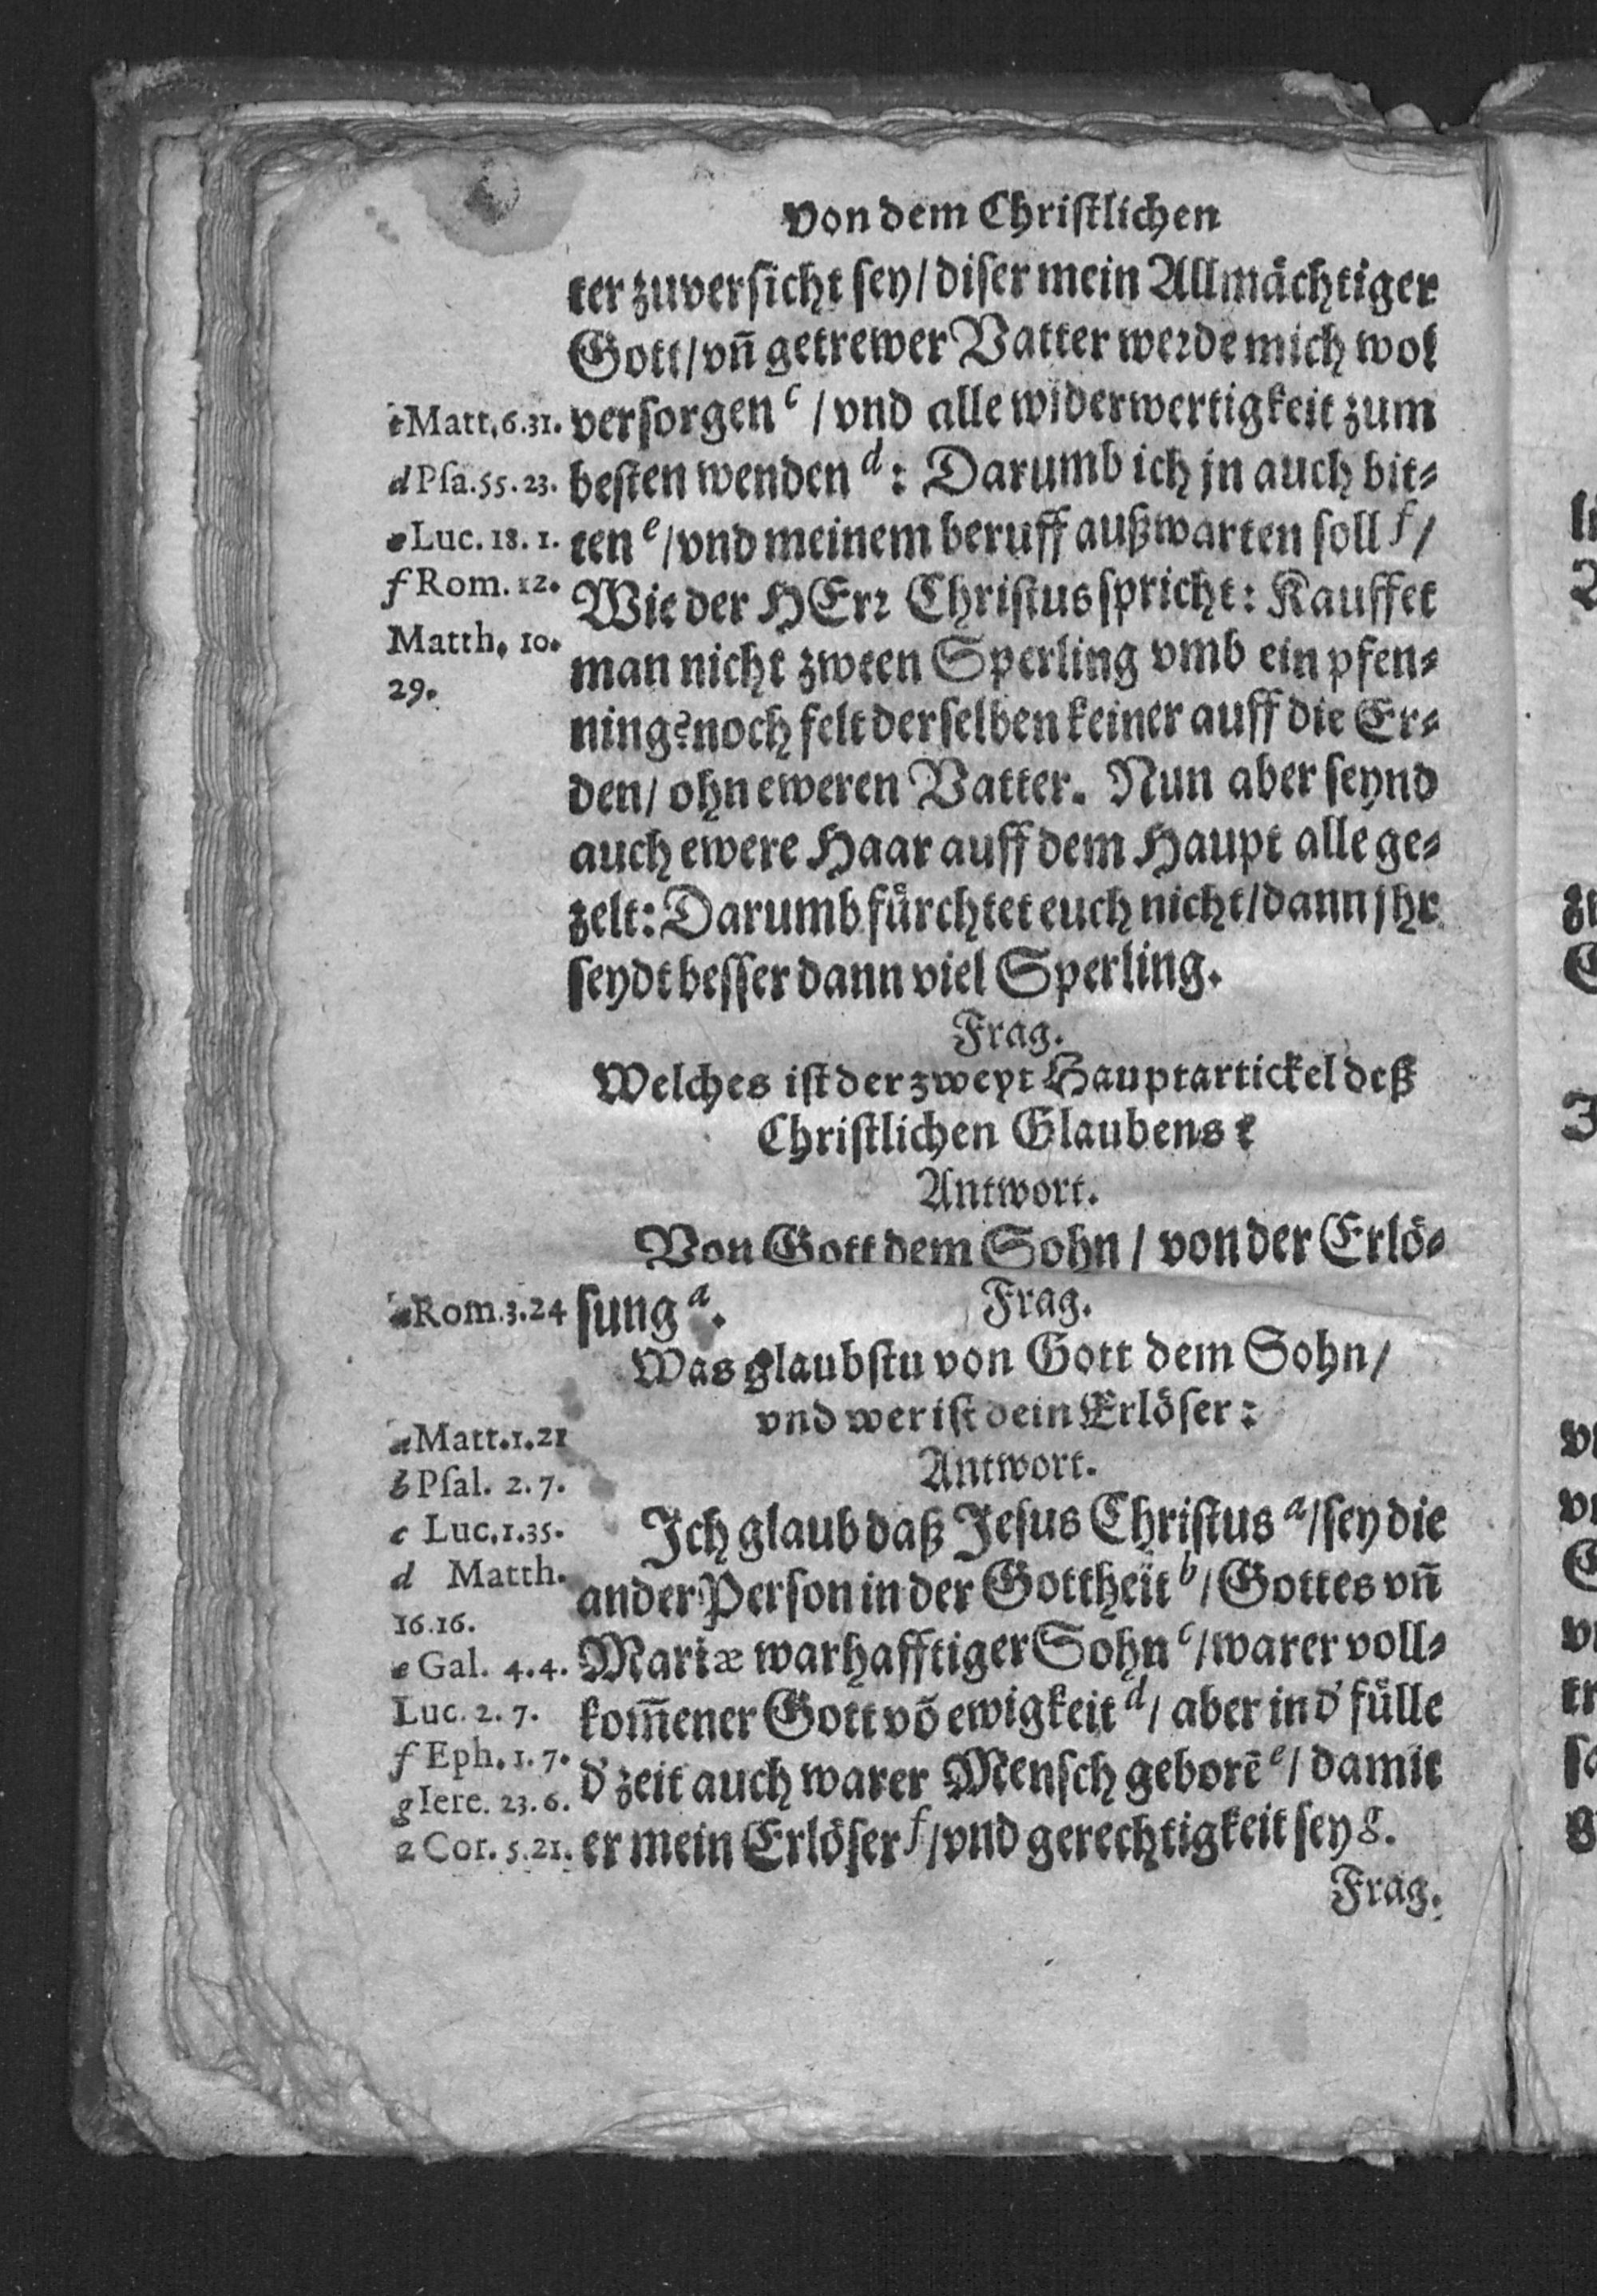 Von dem Christlichen
ter zuversicht sey / diser mein Allmächtiger
Gott / vñ getrewer Vatter werde mich wol
c Matt. 6. 31. versorgen c / vnd alle widerwertigkeit zum
d Psa. 55. 23. besten wenden d : Darumb ich jn auch bit⸗
e Luc. 18. 1. ten e / vnd meinem beruff außwarten soll f /
f Rom. 12. Wie der HErr Christus spricht : Kauffet
Matth. 10. man nicht zween Sperling vmb ein pfen⸗
29. ning? noch felt derselben keiner auff die Er⸗
den / ohn eweren Vatter. Nun aber seynd
auch ewere Haar auff dem Haupt alle ge⸗
zelt: Darumb fürchtet euch nicht / dann jhr
seydt besser dann viel Sperling.
Frag.
Welches ist der zweyt Hauptartickel deß
Christlichen Glaubens?
Antwort.
Von Gott dem Sohn / von der Erlö⸗
a Rom. 3. 24 sung a. Frag.
Was glaubstu von Gott dem Sohn /
vnd wer ist dein Erlöser:
Antwort.
a Matt. 1. 21
b Psal. 2. 7.
c Luc. 1. 35. Ich glaub daß Jesus Christus a / sey die
d Matth. ander Person in der Gottheit b / Gottes vñ
16. 16.
e Gal. 4. 4. Mariæ warhafftiger Sohn c / warer voll⸗
Luc. 2. 7. kom̃ener Gott võ ewigkeit d / aber in d' fülle
f Eph. 1. 7. d' zeit auch warer Mensch geborẽ e / damit
g Iere. 23. 6.
2 Cor. 5. 21. er mein Erlöser f / vnd gerechtigkeit sey g.
Frag.